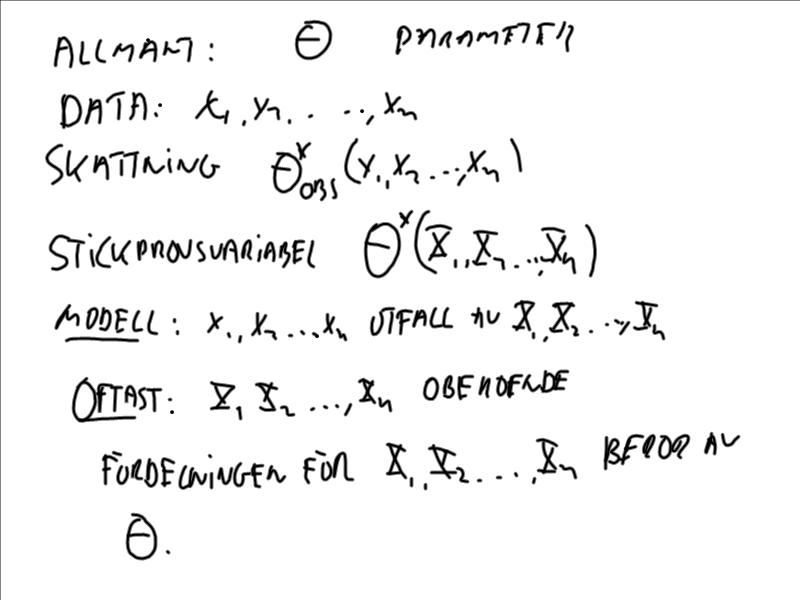 ALLMÄNT: Θ PARAMETER
DATA: x₁, x₂, ..., xₙ
SKATTNING Θ*OBS (x₁, x₂ ..., xₙ)
STICKPROVSVARIABEL Θ*(X₁, X₂ ..., Xₙ)
MODELL: x₁, x₂ ... xₙ UTFALL AV X₁, X₂ ..., Xₙ
OFTAST: X₁ X₂ ..., Xₙ OBEROENDE
FÖRDELNINGEN FÖR X₁, X₂ ..., Xₙ BEROR AV
Θ.